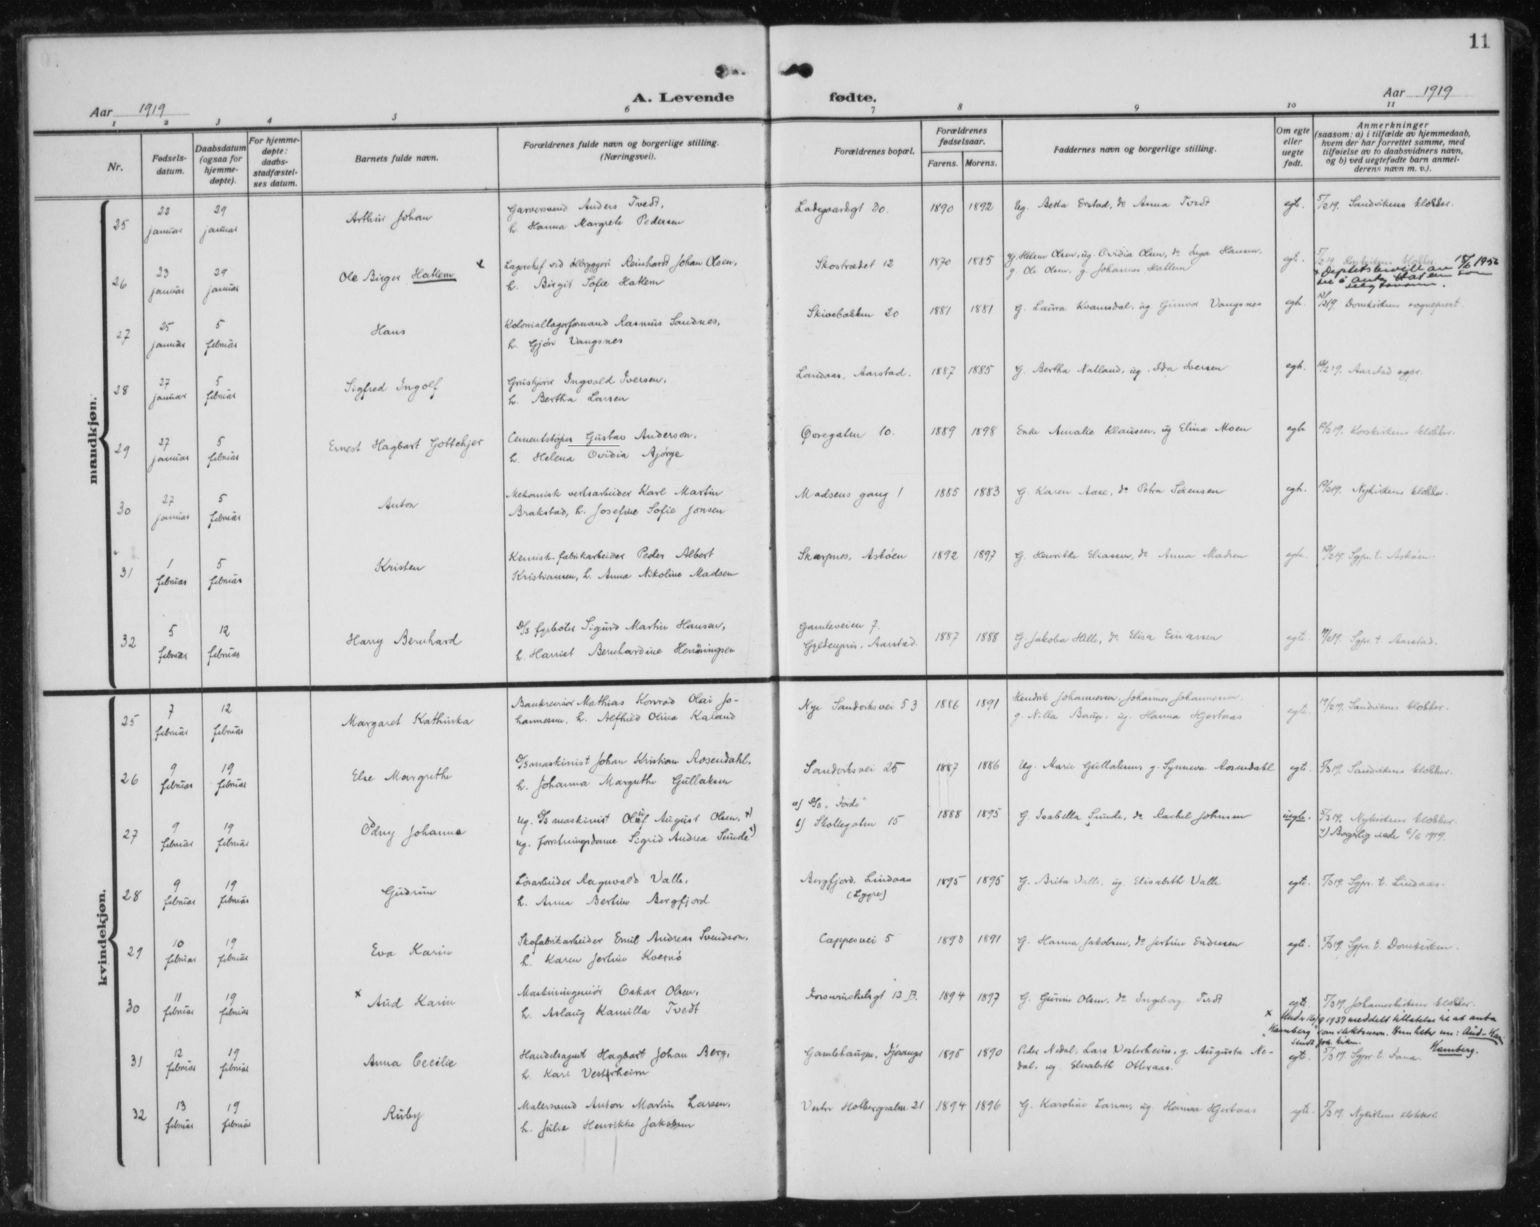 11
Aar 1919
A. Levende fødte.
Aar 1919
1 2 3 4 5 6 7 8 9 10 11
Nr.
Fødsels-
datum.
Daabsdatum
(ogsaa for
hjemme-
døpte).
For hjemme-
døpte:
daabs-
stadfæstel-
ses datum.
Barnets fulde navn.
Forældrenes fulde navn og borgerlige stilling.
(Næringsvei).
Forældrenes bopæl.
Forældrenes
fødselsaar.
Farens. Morens.
Faddernes navn og borgerlige stilling.
Om egte
eller
uegte
født.
Anmerkninger
(saasom: a) i tilfælde av hjemmedaab,
hvem der har forrettet samme, med
tilføielse av to daabsvidners navn,
og b) ved uegtefødte barn anmel-
derens navn m. v.).
mandkjøn.
25 januar 29 januar Arthur Johan Anders Tvedt,
h. Hanna Margrete Pedersen
Ladegaardsgt 30. 1890 1892 Ug. Berta Erstad, do Anna Tvedt egt. Sandvikens klokker.
26 23 januar 29 januar Ole Birger Hatlem x
Lagerchef ved Reinhardt Johan Olsen,
h. Birgit Sofie Hatlem
Skostrædet 12 1870 1885 ug. Ovidia Olsen, do Inga Hansen.
g. Ole Olsen, g. Johannes Hatlem egt. 1956
27 25 januar 5 februar Hans
Koloniallagerformand Rasmus Sandnes,
h. Gjøri Vangsnes
Skivebakken 20 1881 1881 G. Laura Kvamsdal, ug Gunvor Vangsnes egt. Domkirkens sogneprest.
28 27 januar 5 februar Sigfred Ingolf
Ingvald Iversen,
h. Bertha Larsen
Landaas, Aarstad. 1887 1885 G. Bertha Natland, ug. Ida Iversen egt. Aarstad sgpr.
29 27 januar 5 februar Ernest Hagbart Gottehjer
Cementstøper Gustav Anderson,
h. Helena Ovidia Ajørge
Øvregaten 10. 1889 1898 Enke Amalie Klausen, ug Elina Moen egt. Korskirkens klokker.
30 27 januar 5 februar Anton
Mekanisk verkstarbeider Karl Martin
Brakstad, h. Josefine Sofie Jonsen
Madsens gang 1 1885 1883 G. Karen Aase, do Petra Sørensen egt. Nykirkens klokker.
31 1 februar 5 februar Kristen
Kemisk-fabrikarbeider Peder Albert
Kristiansen, h. Anna Nikoline Madsen
Skarpnes, Askøen 1892 1897 G. Henrikke Eliassen, do Anna Madsen egt. Sgpr. t. Askøen.
32 5 februar 12 februar Harry Bernhard
D/S fyrbøter Sigurd Martin Hansen,
h. Harriet Bernhardine Henningsen
Gamleveien 7.
Gyldenpris, Aarstad. 1887 1888 G. Jakoba Hille, do Elisa Einarsen egt. Sgpr. t. Aarstad.
kvindekjøn.
25 7 februar 12 februar Margaret Kathinka
Bankrevisor Mathias Konrad Olai Jo-
hannessen, h. Alfhild Olina Kaland
Nye Sandviksvei 53 1886 1891 Hendrik Johannessen, Johannes Johannessen
g. Nilla Bauge, ug. Hanna Hjertaas egte. Sandvikens klokker.
26 9 februar 19 februar Else Margrethe
D/S maskinist Johan Kristian Rosendahl,
h. Johanna Margrethe Gullaksen
Sandviksvei 25 1887 1886 Ug. Marie Gullaksen, g. Synneva Rosendahl egte. Sandvikens klokker.
27 9 februar 19 februar Ödny Johanna
Ug. D/S maskinist Oluf August Olsen, a)
ug. forretningsdame Sigrid Andrea Sunde b)
a) D/S "Fordi"
b) Skottegaten 15 1888 1895 G. Isabella Sunde, do Rachel Johnsen uegte. Nykirkens klokker.
1919.
28 9 februar 19 februar Gudrun
Løsarbeider Ragnvald Valle,
h. Anna Bertine Bergfjord
Bergfjord, Lindaas
(Lygre) 1895 1895 G. Brita Valle, ug. Elisabeth Valle egte. Sgpr. t. Lindaas.
29 10 februar 19 februar Eva Karin
Skofabrikarbeider Emil Andreas Svendsen,
h. Karen Jertine Kversø
Cappesvei 5 1890 1891 G. Hanna Jakobsen, do Jertine Endresen egte. Sgpr. t. Domkirken.
30 11 februar 19 februar x Aud Karin
Maskiningeniør Oskar Olsen,
h. Aslaug Kamilla Tvedt
Forsvindelsesgt 12 B. 1894 1897 G. Gunni Olsen, do Ingeborg Tvedt egte. Johanneskirkens klokker.
x 1937 meddelt tillatelse til at anta
"Hamberg" som slektsnavn. Hun heter nu: Aud Ka-
Hamberg.
31 12 februar 19 februar Anna Cecilie
Handelsagent Hagbart Johan Berg,
h. Kari Vesterheim
Gamlehaugen, Fjøsanger 1895 1890 Peder Nedal, Lars Vesterheim, g. Augusta Ne-
dal, ug. Elisabeth Otteraas. egte. Sgpr. t. Fana.
32 13 februar 19 februar Ruby
Malersvend Anton Martin Larsen,
h. Julie Henrikke Jakobsen
Vestre Holbergsalm. 21 1894 1896 G. Karoline Larsen, ug Hanna Hjertaas egte. Nykirkens klokker.